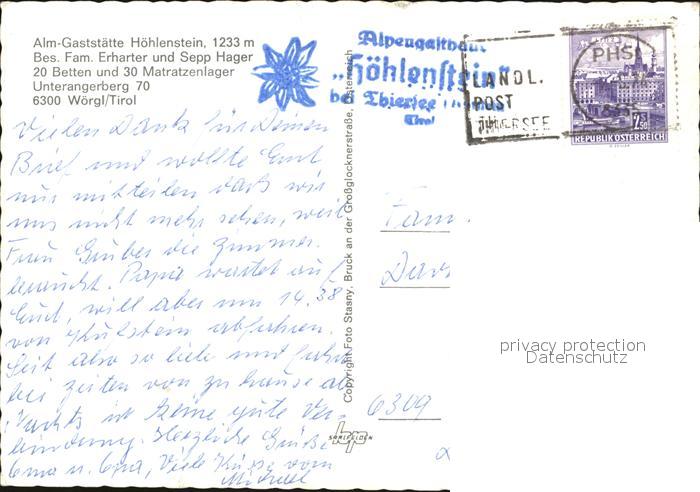 Alm-Gaststätte Höhlenstein, 1233 m
Bes. Fam. Erharter und Sepp Hager
20 Betten und 30 Matratzenlager
Unterangerberg 70
6300 Wörgl/Tirol
Alpengasthaus
„Höhlenstein"
bei Thiersee
Tirol
LANDL.
POST
THIERSEE
2.50
REPUBLIK ÖSTERREICH
Vielen Dank für Deinen
Brief und wollte Euch
nur mitteilen daß wir
uns nicht mehr sehen, weil
Frau Gruber die Zimmer
braucht. Papa wartet auf
Euch, will aber um 14.38
von Kufstein abfahren.
Seit also so lieb und fahrt
bei zeiten von zu hause ab
Nachts ist keine gute Ver-
bindung. Herzliche Grüße
Oma u. Opa, Viele Küsse vom
Michael
Copyright Foto Stasny, Bruck an der Großglocknerstraße, Österreich
Fam.
6309
SAALFELDEN
privacy protection
Datenschutz